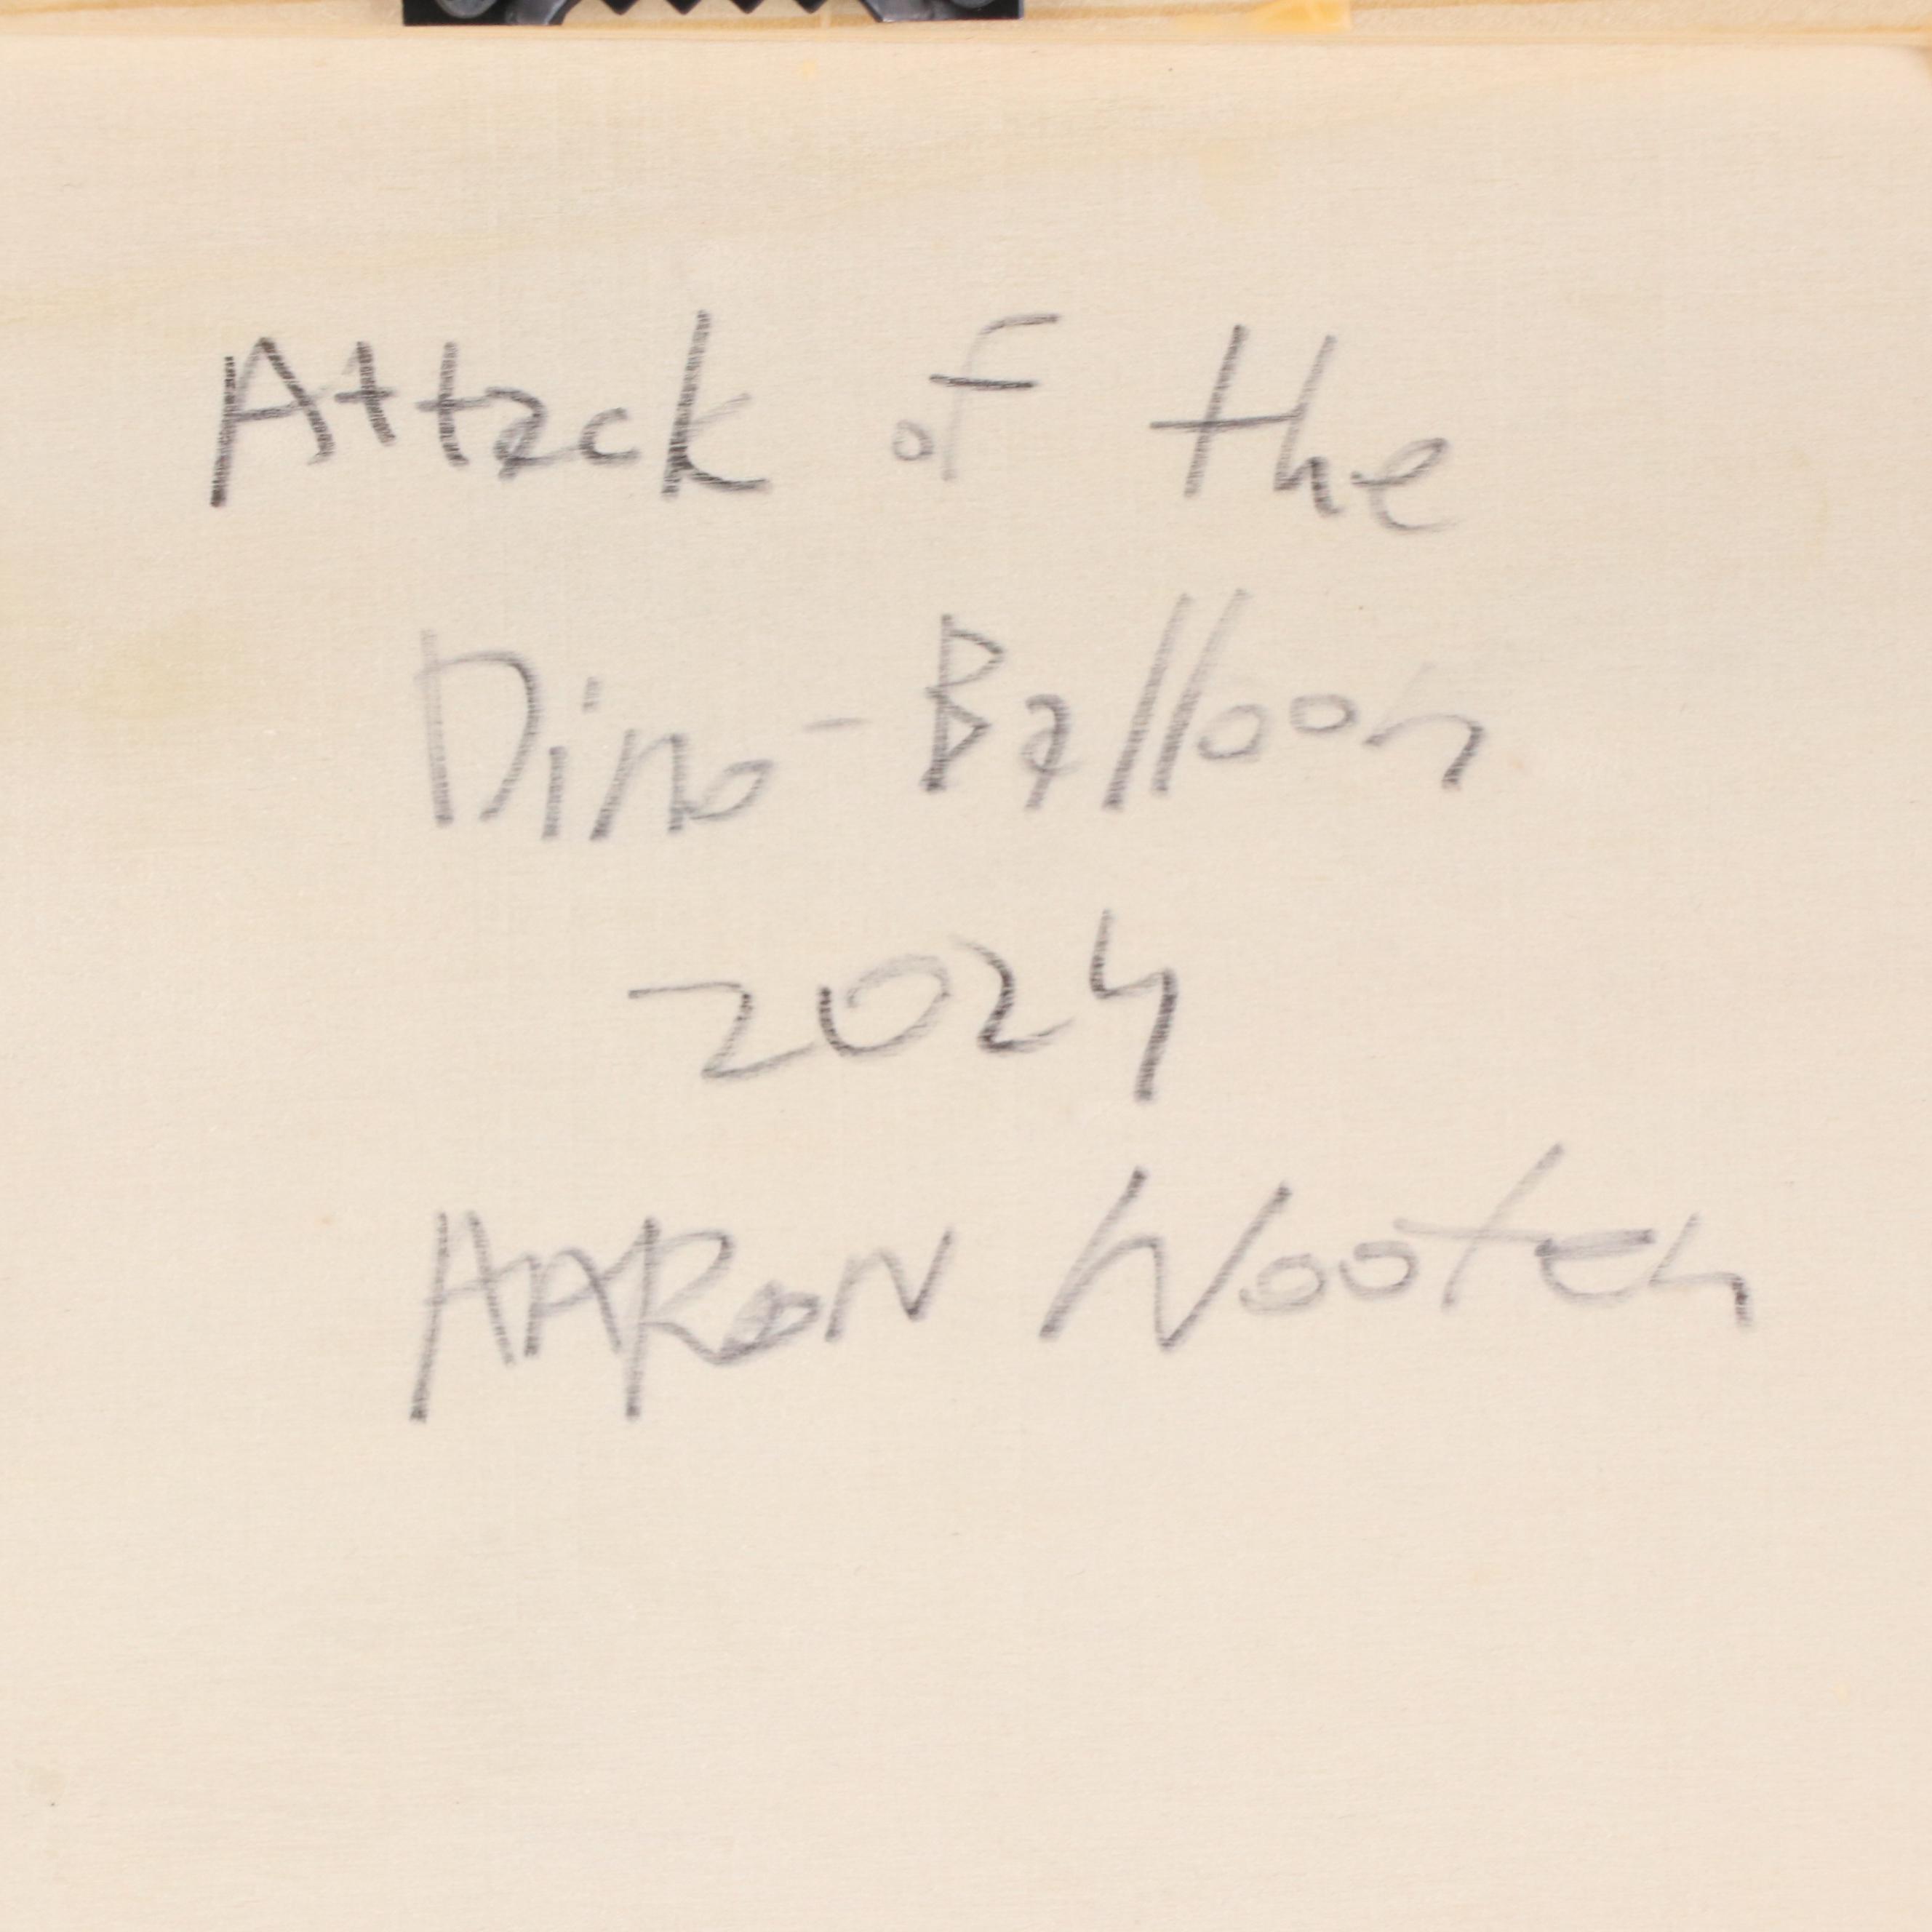 Attack of the
Dino-Balloon
2024
AARON Wooten